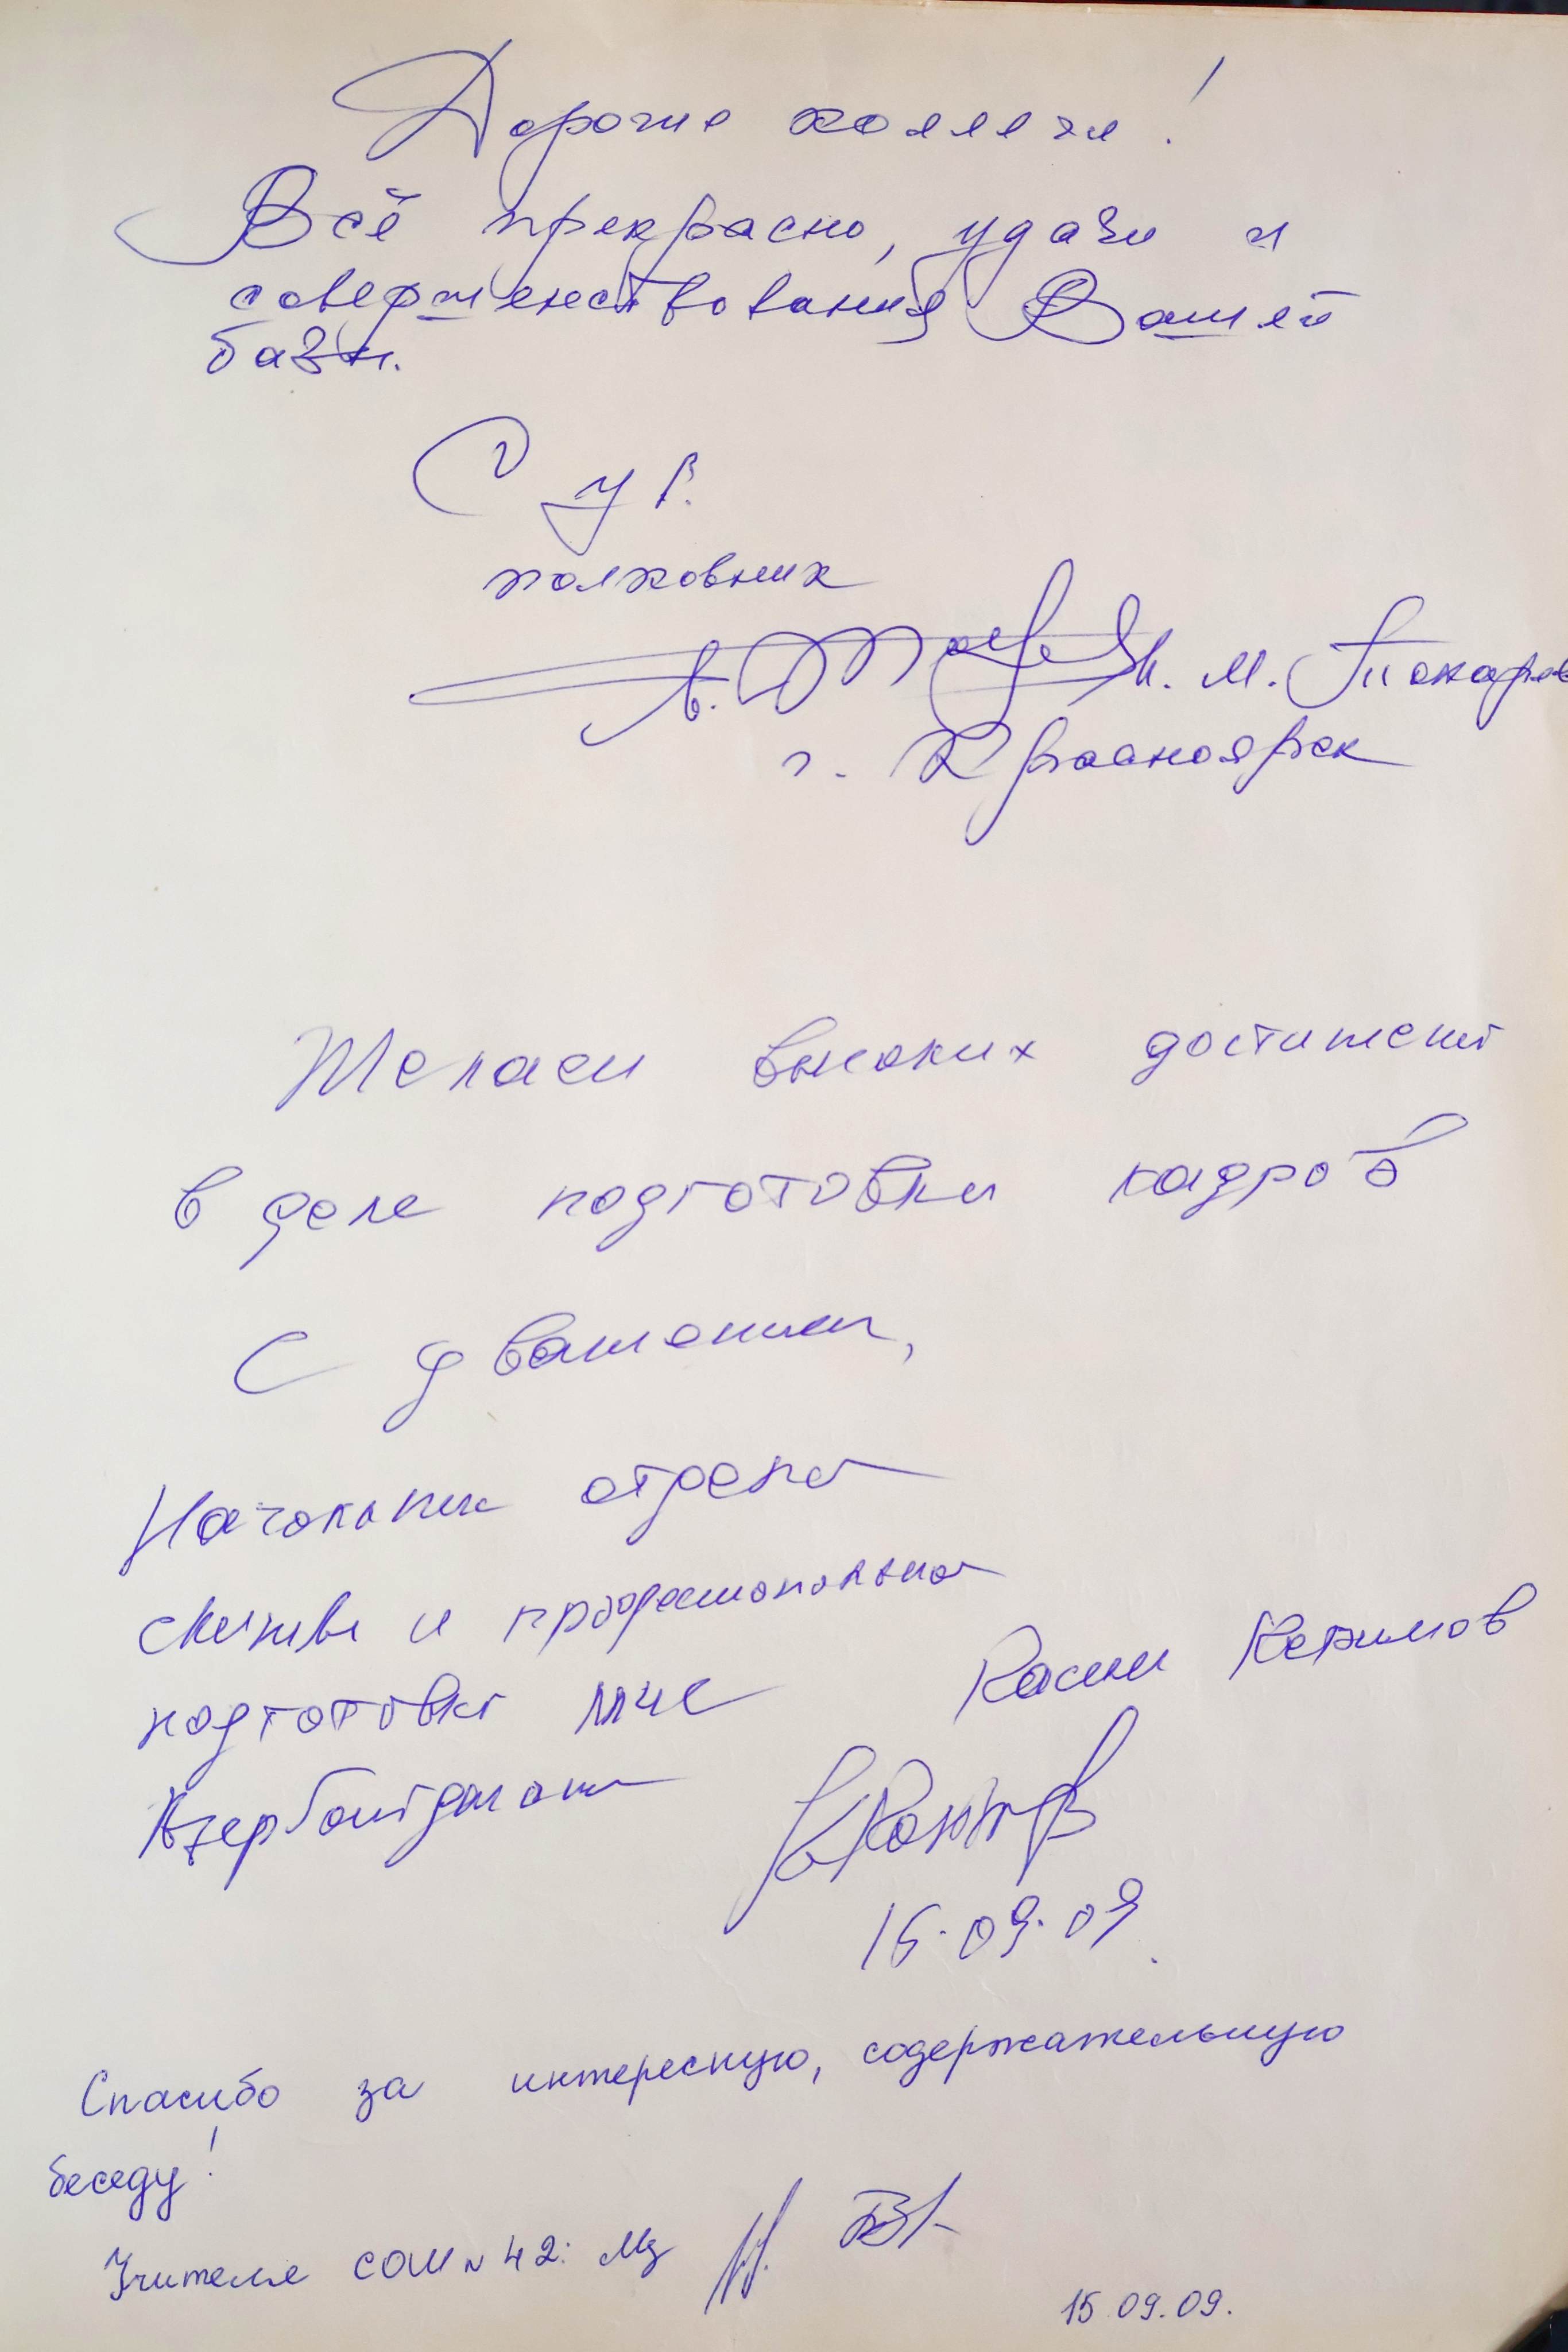 Дорогие коллеги!
Всё прекрасно, удачи и
совершенствования Вашей
базы.
С ув.
полковник
М. Токарев
г. Красноярск
Желаем высоких достижений
в деле подготовки кадров
С уважением,
Начальник отдела
службы и профессиональной
подготовки МЧС
Азербайджана
Расим Керимов
16.09.09.
Спасибо за интересную, содержательную
беседу!
Учителя СОШ № 42:
15.09.09.